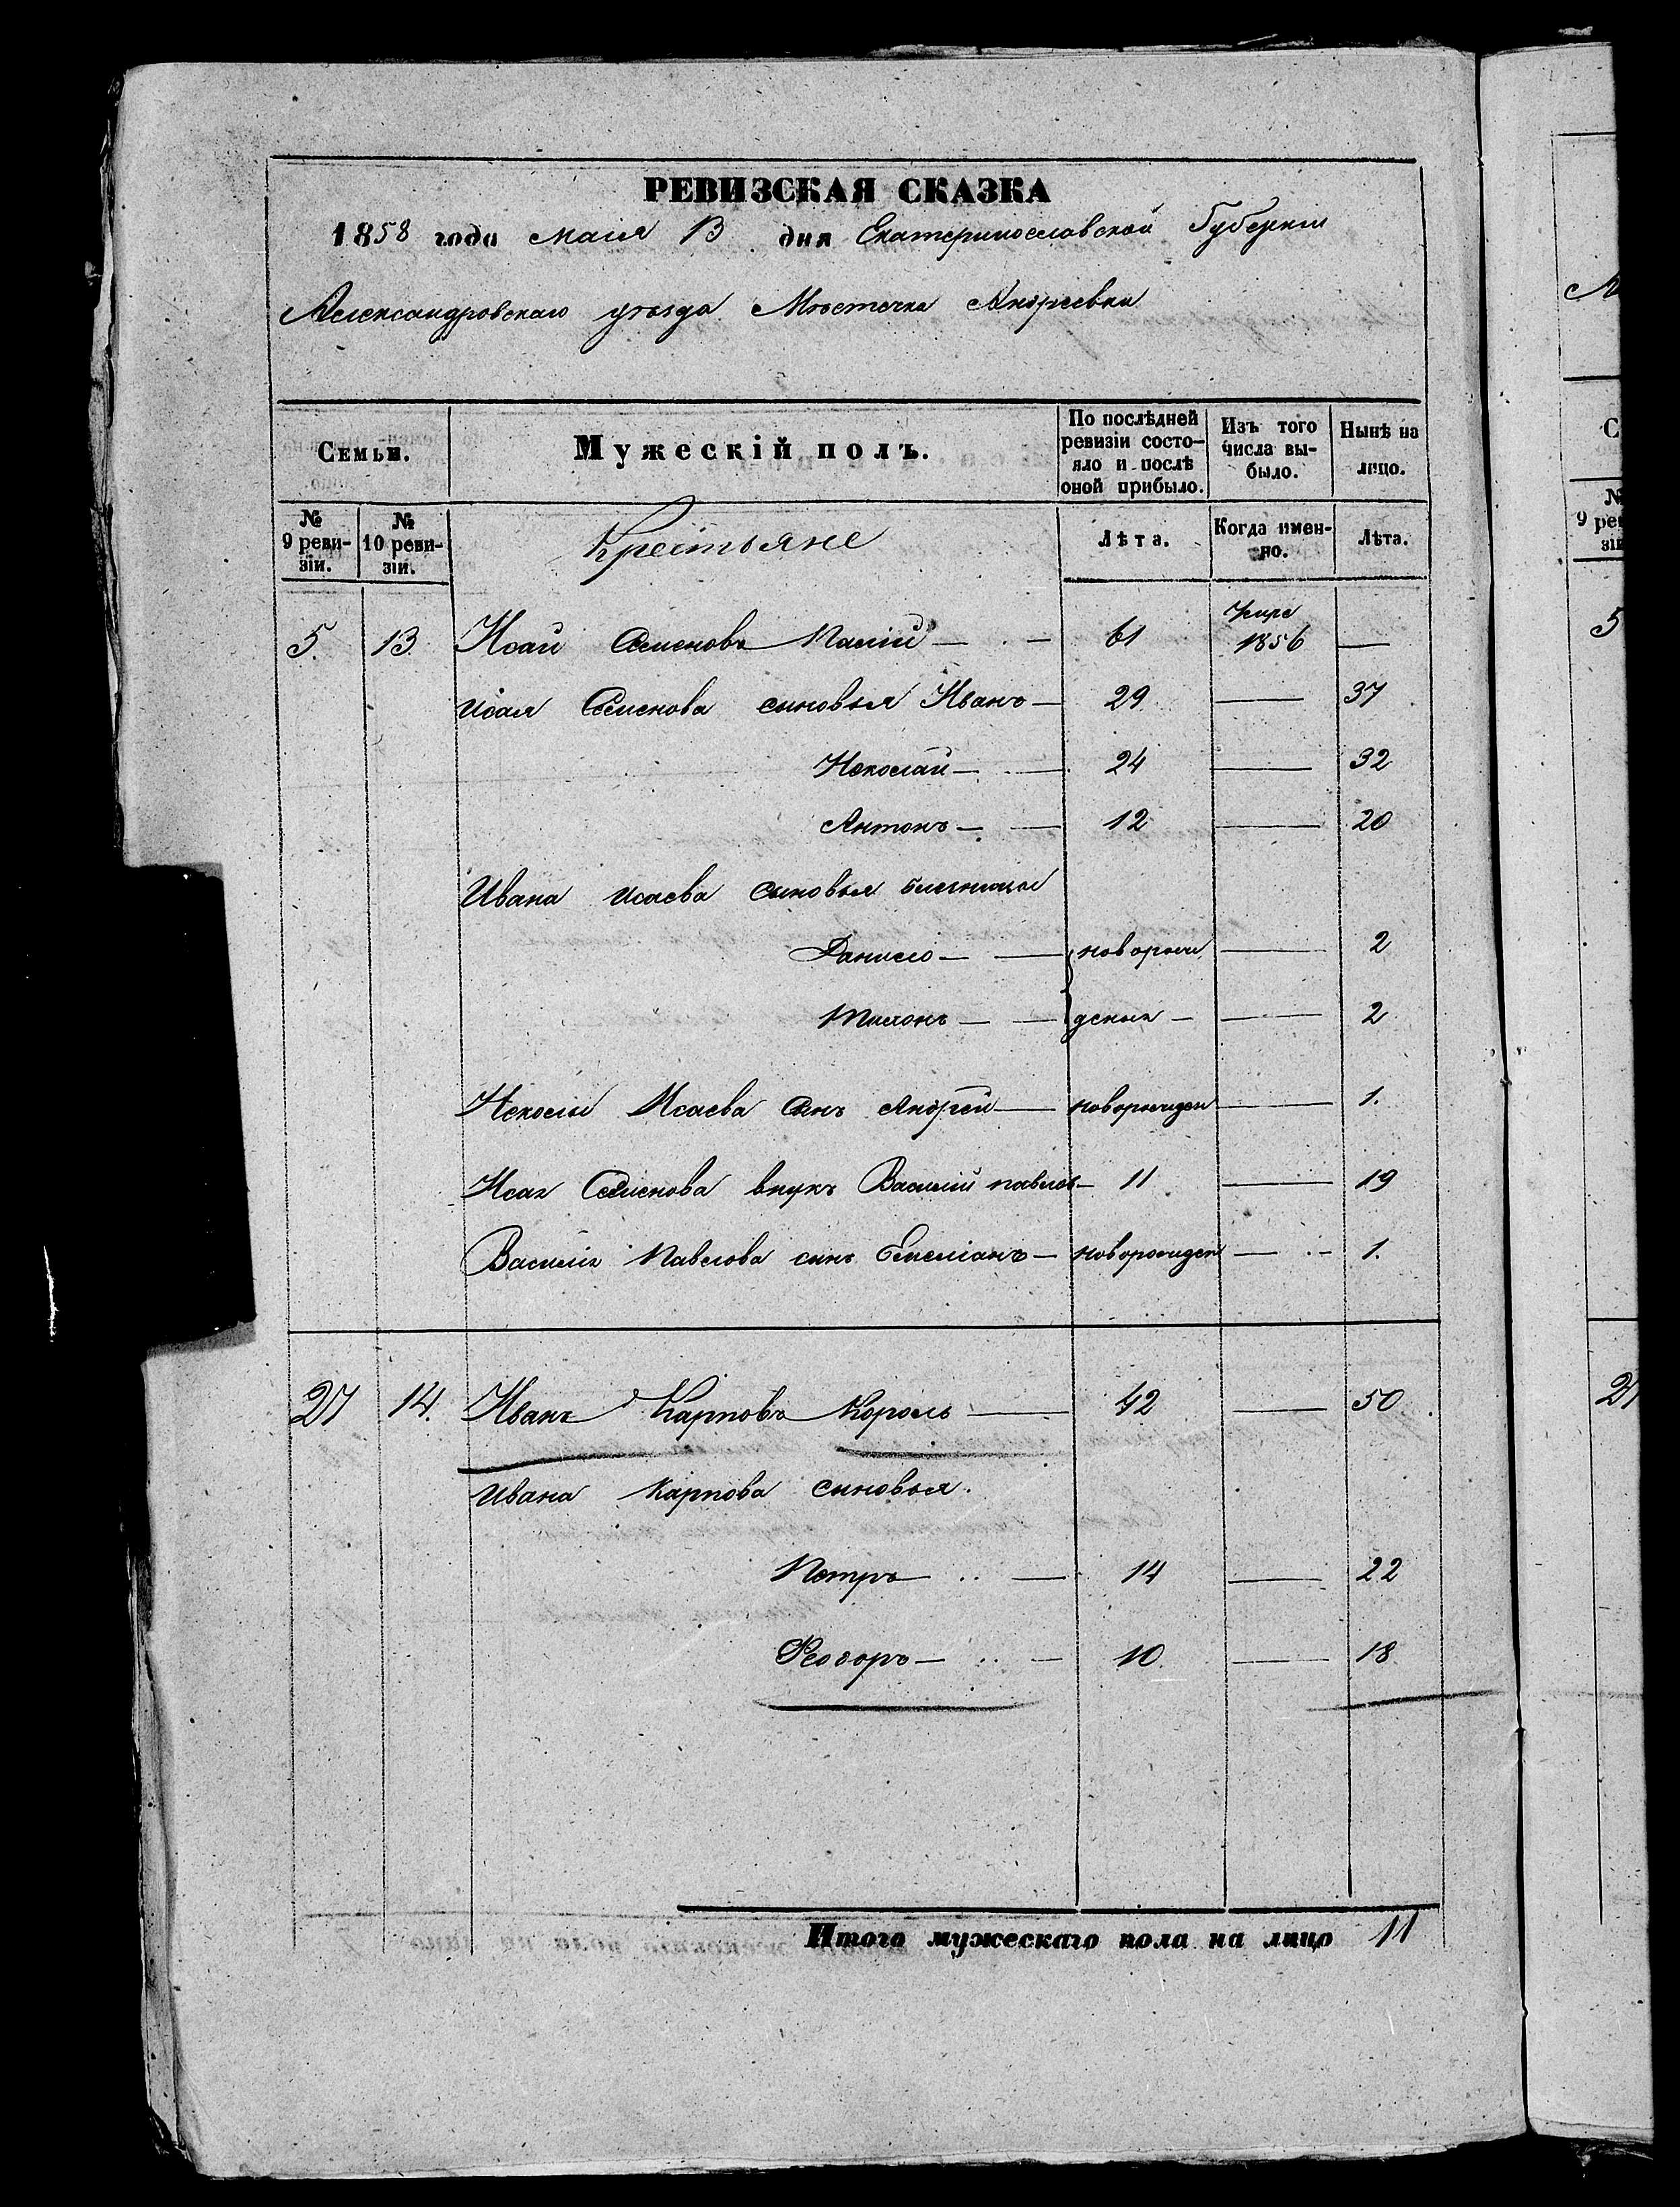 РЕВИЗСКАЯ СКАЗКА
1858 года маія 13 дня Екатеринославской Губерніи
Александровскаго уѣзда Мѣстечка Андреевки
Семьи. Мужескій полъ. По послѣдней ревизіи состо-яло и послѣ оной прибыло. Изъ того числа вы-было. Нынѣ на лицо.
№ 9 реви-зіи. № 10 реви-зіи. Крестьяне Лѣта. Когда имен-но. Лѣта.
5. 13. Исай Семеновъ Палій — 61 умре 1856 —
Исая Семенова сыновья Иванъ — 29 — 37
Николай — 24 — 32
Антонъ — 12 — 20
Ивана Исаева сыновья близницы
Данило — новорож — 2
Тихонъ — денны — 2
Николы Исаева сынъ Андрей — новорожден — 1.
Исая Семенова внукъ Василій павловъ — 11 — 19
Василія Павлова сынъ Емеліанъ — новорожден — 1.
27 14. Иванъ Карповъ Король — 42 — 50
Ивана Карпова сыновья.
Петръ — 14 — 22
Феодоръ — 10. — 18
Итого мужескаго пола на лицо 11
№
9 рев
зіи
5
27